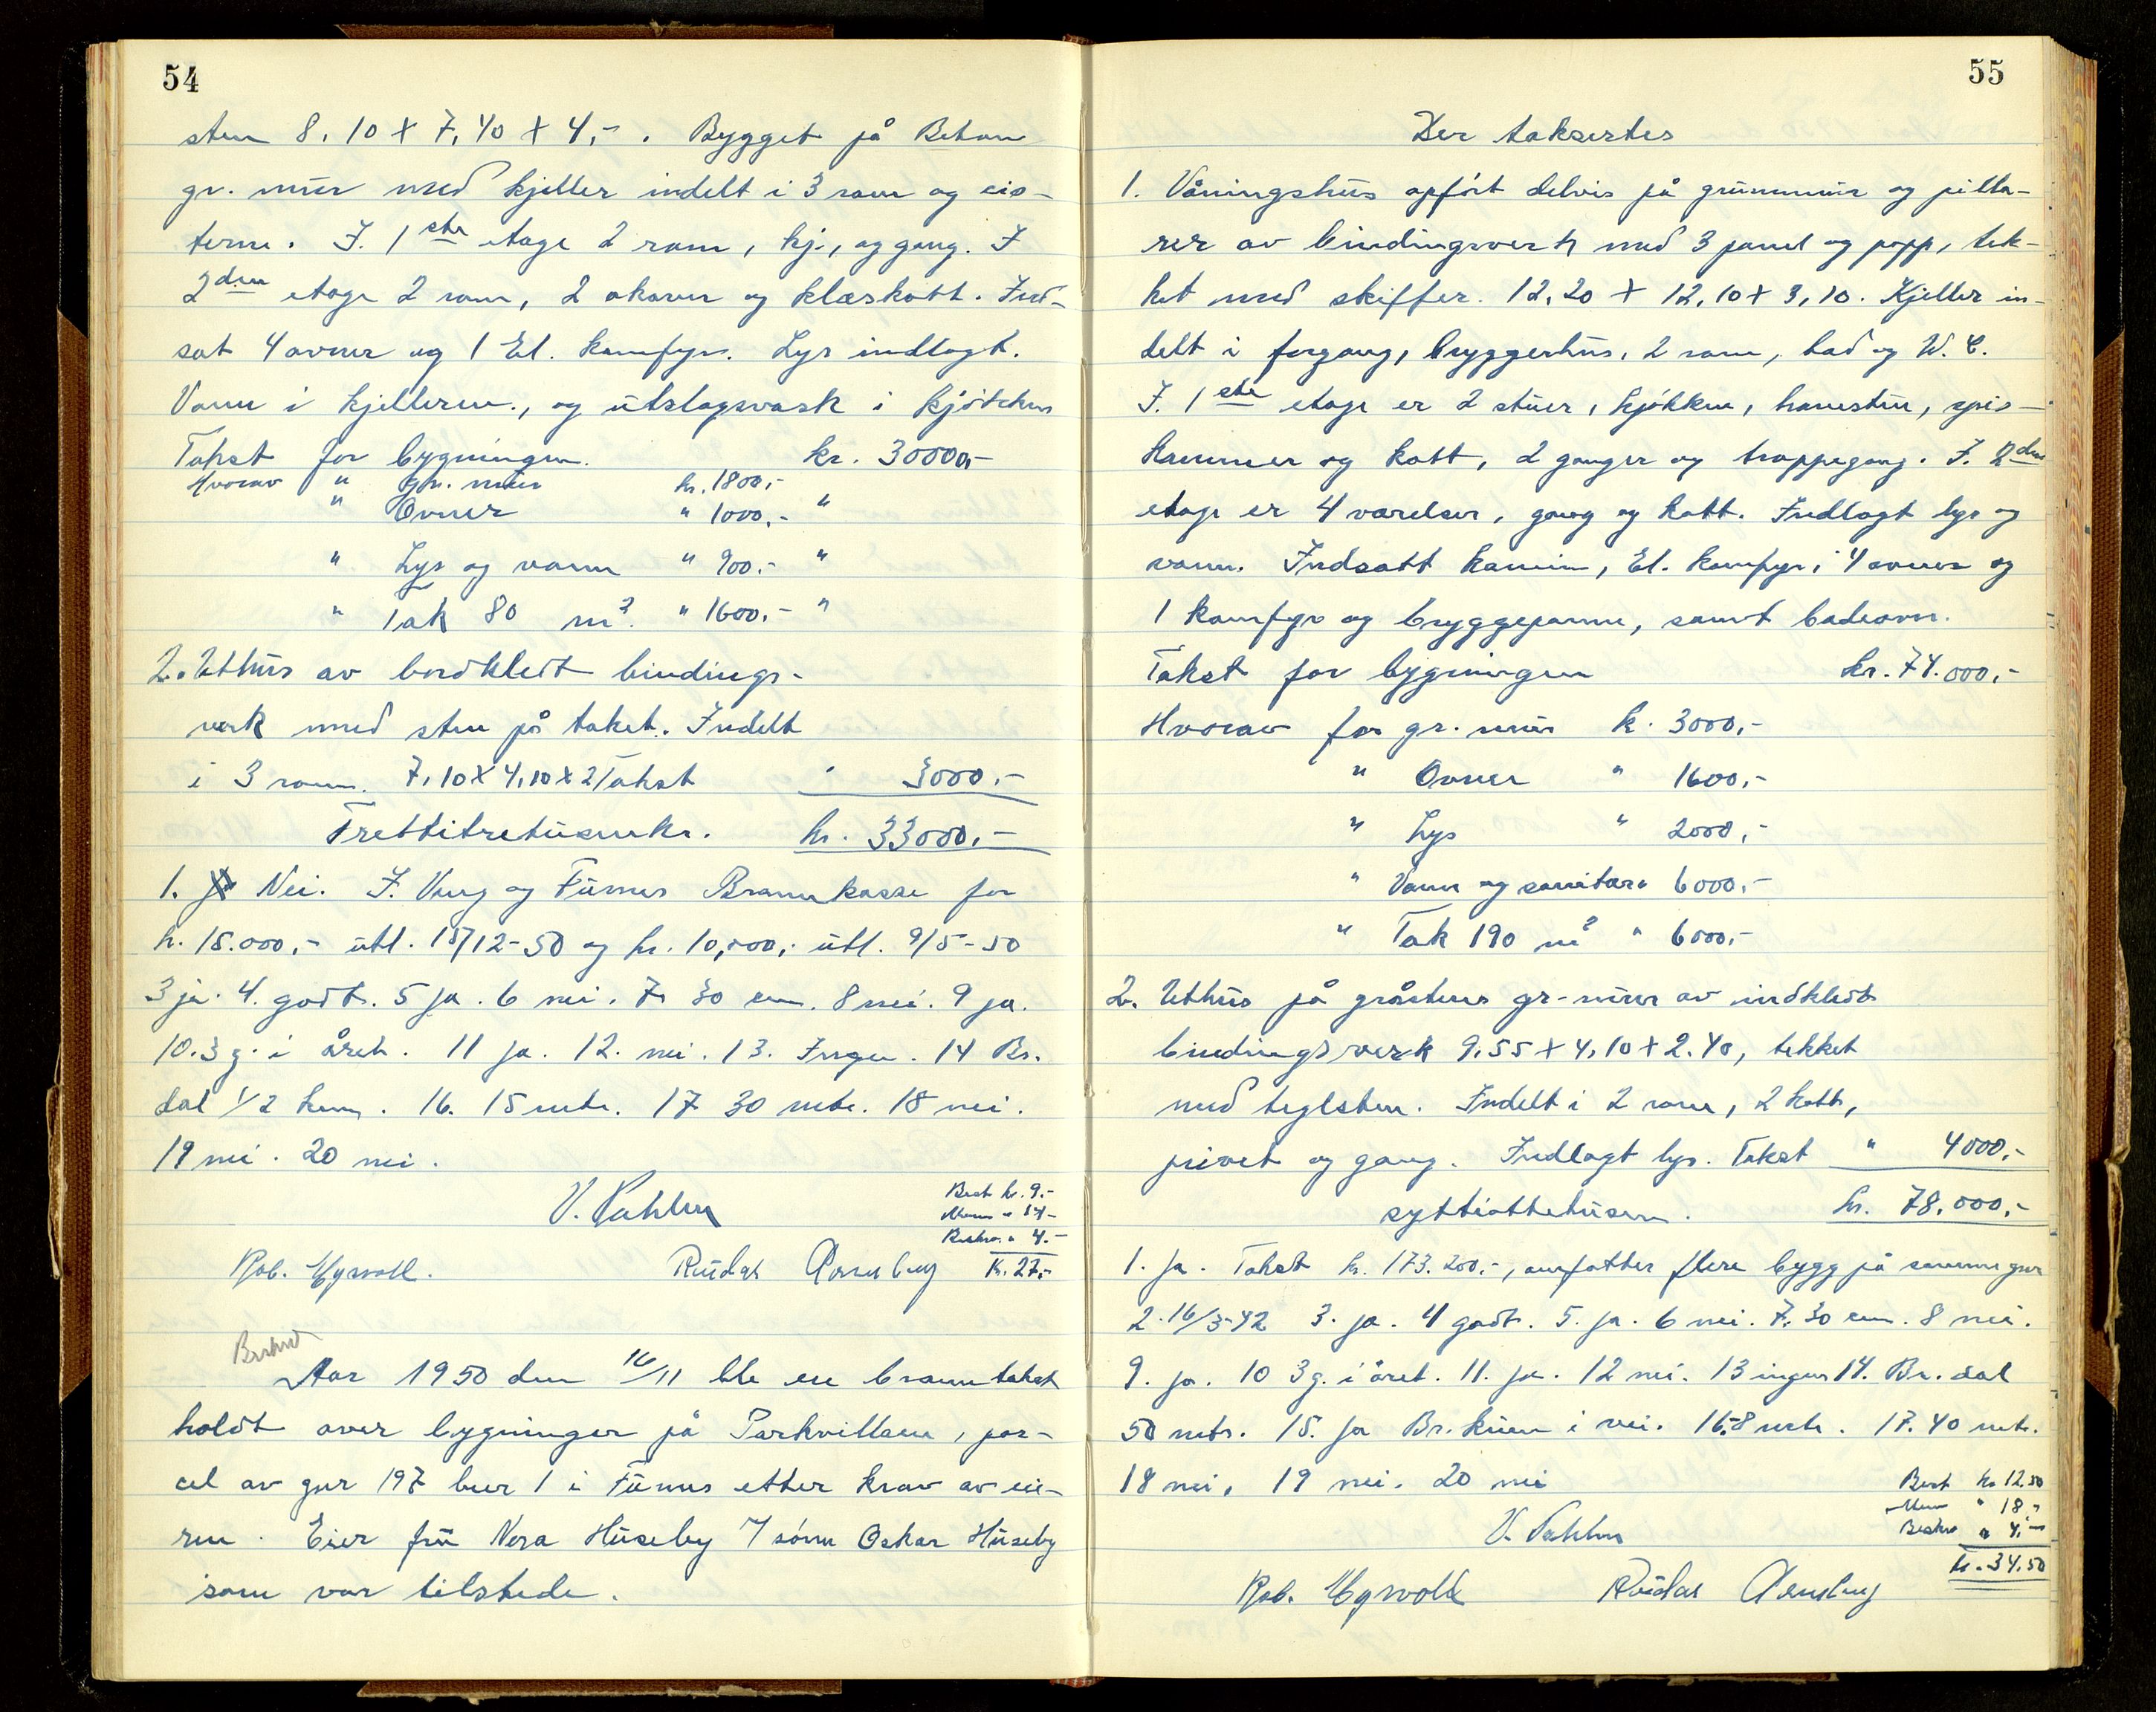 54
sten 8,10 x 7,40 x 4,-. Bygget på Betong
gr. mur med kjeller indelt i 3 rom og cis-
terne. I. 1ste etage 2 rom, kj., og gang. I
2den etage 2 rom, 2 akover og klæskott. Ind-
sat 4 ovner og 1 El. komfyr. Lys indlagt.
Vann i kjelleren., og utslagsvask i kjökken
Takst for bygningen. kr. 30000,-
Hvorav " gr. mur kr. 1800,-
" Ovner " 1000,- "
" Lys og vann " 900,- "
" Tak 80 m2. " 1600,- "
2. Uthus av bordkledt bindings-
verk med sten på taket. Indelt
i 3 rom. 7,10 x 4,10 x 2 Takst " 3000,-
Trettitretusenkr. kr. 33000,-
1. Nei. I. Vang og Furnes Brannkasse for
kr. 15.000,- utl. 15/12-50 og kr. 10,000,- utl. 9/5-50
3 ja. 4. godt. 5 ja. 6 nei. 7. 30 cm. 8 nei. 9 ja.
10. 3 g. i året. 11 ja. 12. nei. 13. Ingen. 14 Br.
dal 1/2 km. 16. 15 mtr. 17 30 mtr. 18 nei.
19 nei. 20 nei.
V. Pahlm
Best kr. 9.-
" 14-
Beskr. " 4.-
K. 27,-
Rob. Myrvoll. Reidar Arnsberg
Aar 1950 den 16/11 ble en branntakst
holdt over bygninger på Parkvillaen, par-
cel av gnr 197 bnr 1 i Furnes etter krav av eie-
ren. Eier fru Nora Huseby v/ sönn Oskar Huseby
som var tilstede.
55
Der taksertes
1. Våningshus opfört delvis på grunnmur og pilla-
rer av bindingsverk med 3 panel og papp, tek-
ket med skiffer. 12,20 x 12,10 x 3,10. Kjeller in-
delt i forgang, bryggerhus, 2 rom, bad og W. C.
I. 1ste etage er 2 stuer, kjökken, havestue, spis-
kammer og kott, 2 ganger og trappegang. I. 2den
etage er 4 værelser, gang og kott. Indlagt lys og
vann. Indsatt kamin, El. komfyr, 4 ovner og
1 komfyr og bryggepanne, samt badeovn.
Takst for bygningen kr. 74.000,-
Hvorav for gr. mur k. 3000,-
" Ovner " 1600,-
" Lys " 2000,-
" Vann og sanitær " 6000,-
" Tak 190 m2 " 6000,-
2. Uthus på gråstens gr-mur av indkledt
bindingsverk 9,55 x 4,10 x 2.40, tekket
med teglsten. Indelt i 2 rom, 2 kott,
privet og gang. Indlagt lys. Takst " 4000,-
syttiottetusen. kr. 78.000,-
1. Ja. Takst kr. 173.200,-, omfatter flere bygg på samme gnr
2. 16/3-42 3. ja. 4 godt. 5. ja. 6 nei. 7. 30 cm. 8 nei.
9. ja. 10 3 g. i året. 11. ja. 12 nei. 13 ingen 14. Br. dal
50 mtr. 15. ja Br. kum i vei. 16. 8 mtr. 17. 40 mtr.
18 nei, 19 nei. 20 nei
Best kr 12.50
" 18 -
Beskr " 4,-
kr. 34,50
V. Pahlm
Rob. Myrvoll Reidar Arnsberg